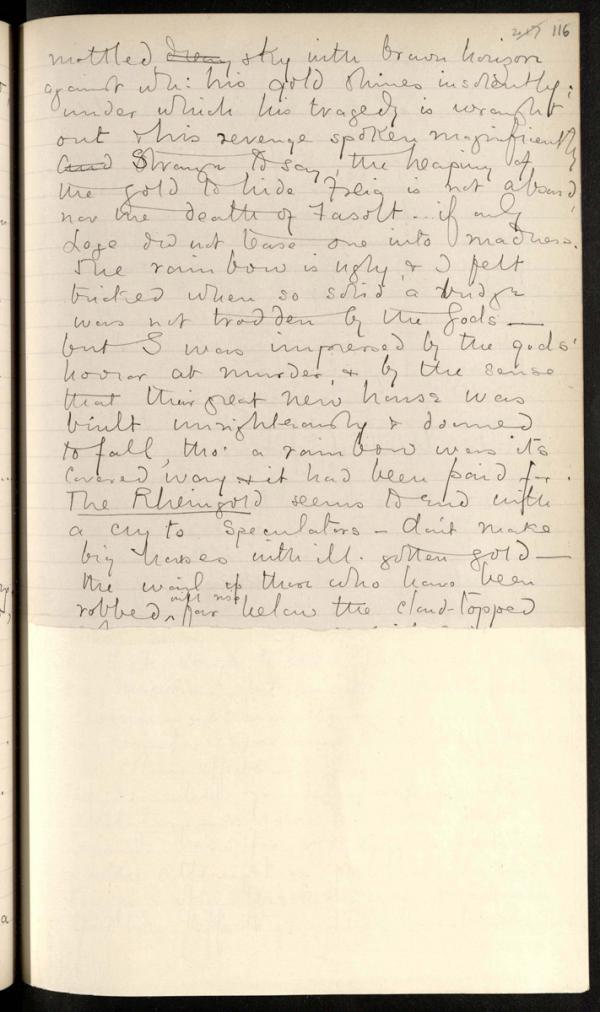 217 116
mottled dreamy sky with brown horizon
against wh: his gold shines insolently;
under which his tragedy is wrought
out & his revenge spoken magnificently
And Strange to say, the heaping of
the gold to hide Freia is not absurd,
nor the death of Fasolt... if only
Loge did not tease one into madness.
The rainbow is ugly & I felt
tricked when so solid a bridge
was not trodden by the Gods —
but I was impressed by the gods'
horror at murder, & by the sense
that their great new house was
built unrighteously & doomed
to fall, tho' a rainbow was its
covered way & it had been paid for.
The Rheingold seems to end with
a cry to Speculators – don't make
big houses with ill-gotten gold —
the wail of those who have been
robbed, will rise far below the cloud-topped